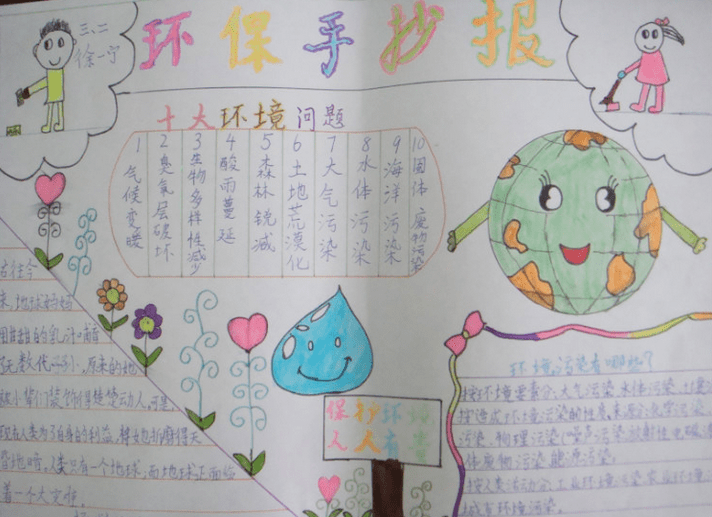 三、二
徐一宁
环保手抄报
十大环境问题
1 气候变暖
2 臭氧层破坏
3 生物多样性减少
4 酸雨蔓延
5 森林锐减
6 土地荒漠化
7 大气污染
8 水体污染
9 海洋污染
10 固体废物污染
古往今
来，地球妈妈
用甜甜的乳汁哺育
了无数代
原来的她
被小辈们装饰得楚楚动人。可是，
现在人类为了自身的利益，将她折磨得天
昏地暗。人类只有一个地球；而地球正面临
着一个大灾难。
保护环境
人人有责
环境污染有哪些？
按环境要素分：大气污染、水体污染、土壤
按造成环境污染的性质、来源分：化学污染
污染、物理污染（噪声污染、放射性、电磁波
体废物污染、能源污染。
按人类活动分：工业环境污染、农业环境
城市环境污染。